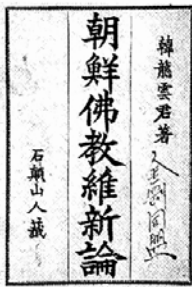 韓龍雲君著
朝鮮佛教維新論
石顚山人籤